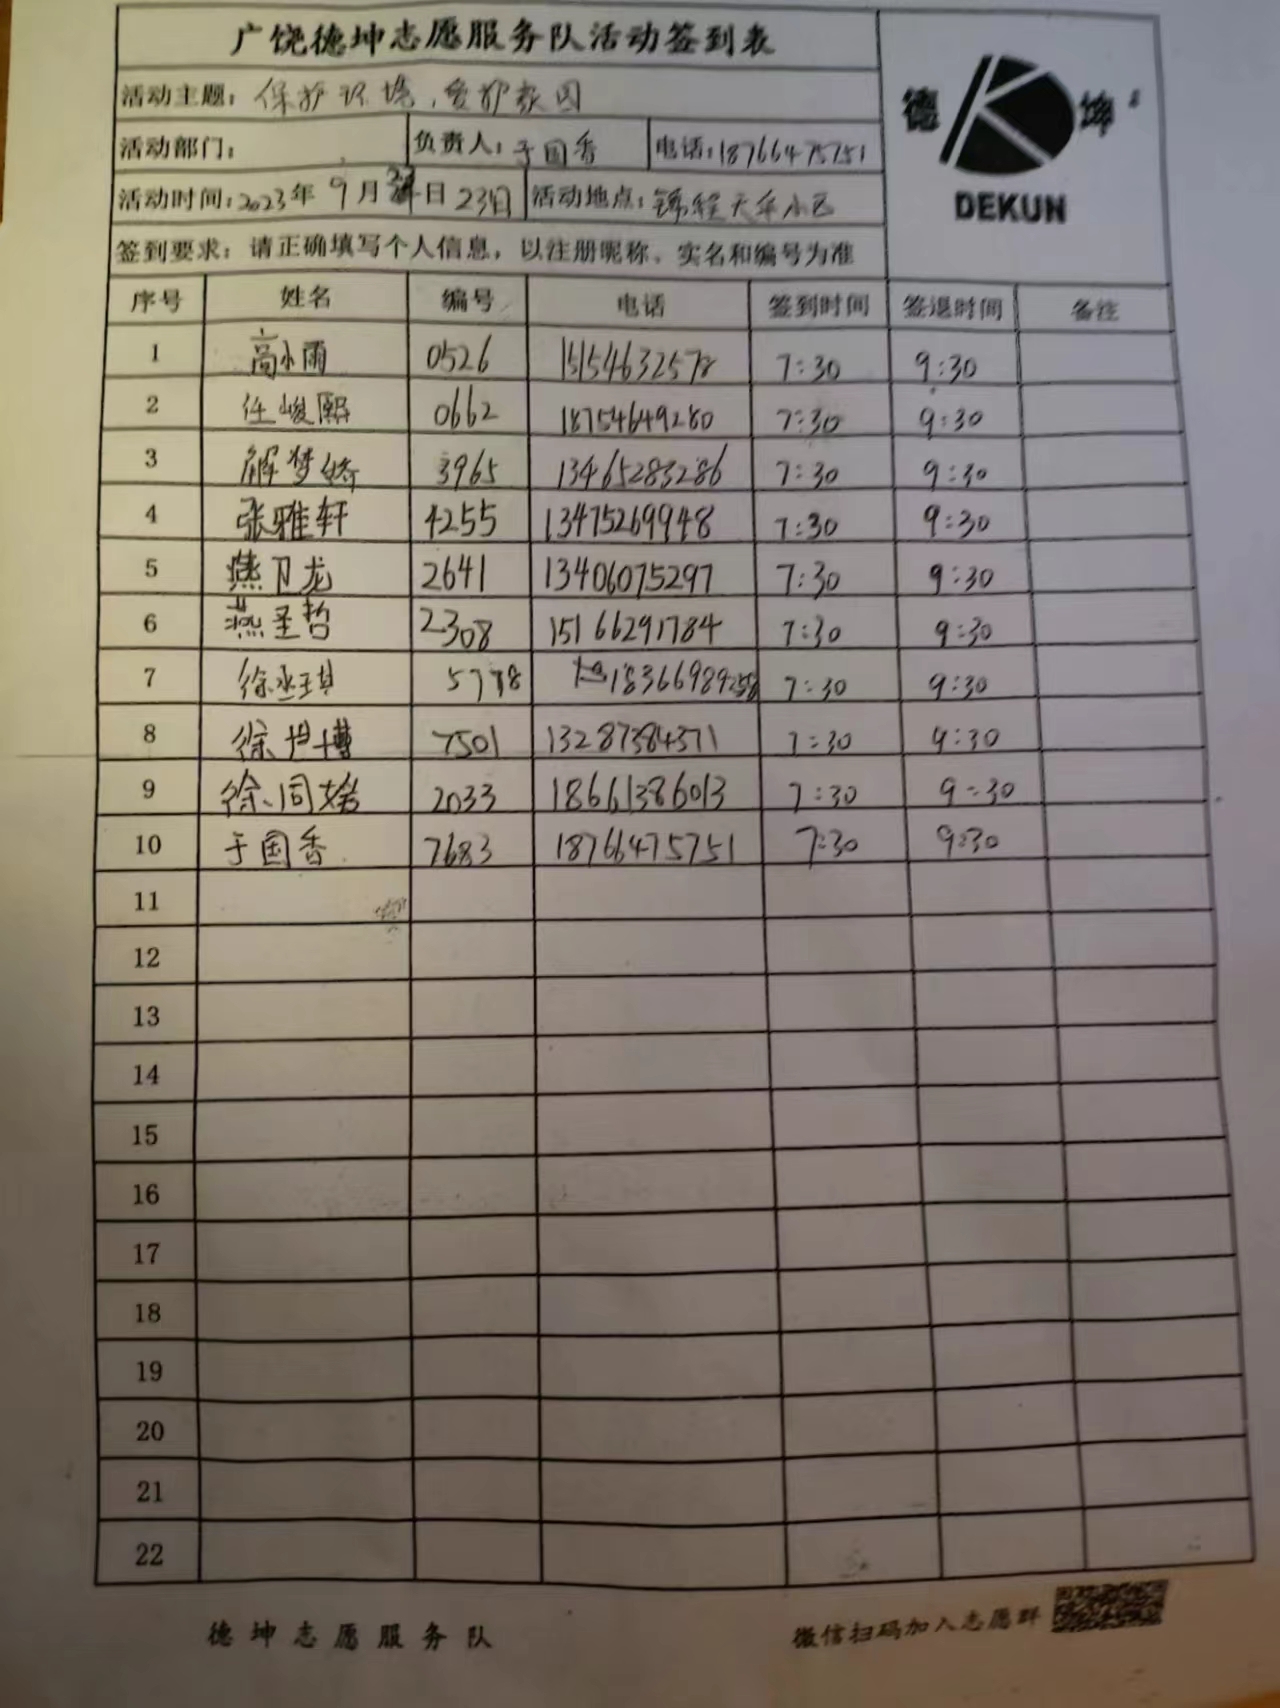 广饶德坤志愿服务队活动签到表
德 坤
DEKUN
活动主题：保护环境，爱护家园
活动部门： 负责人：于国香 电话：18766475751
活动时间：2023年9月日23日 活动地点：锦程天华小区
签到要求：请正确填写个人信息，以注册昵称、实名和编号为准
序号 姓名 编号 电话 签到时间 签退时间 备注
1 高小雨 0526 15154632578 7:30 9:30
2 任峻熙 0662 18754649280 7:30 9:30
3 解梦娇 3965 13465283286 7:30 9:30
4 张雅轩 4255 13475269948 7:30 9:30
5 燕卫龙 2641 13406075297 7:30 9:30
6 燕圣哲 2308 15166291784 7:30 9:30
7 徐丞琪 5778 18366989258 7:30 9:30
8 徐世博 7501 13287384371 7:30 9:30
9 徐同 2033 18661386013 7:30 9:30
10 于国香 7683 18766475751 7:30 9:30
11
12
13
14
15
16
17
18
19
20
21
22
德坤志愿服务队 微信扫码加入志愿群